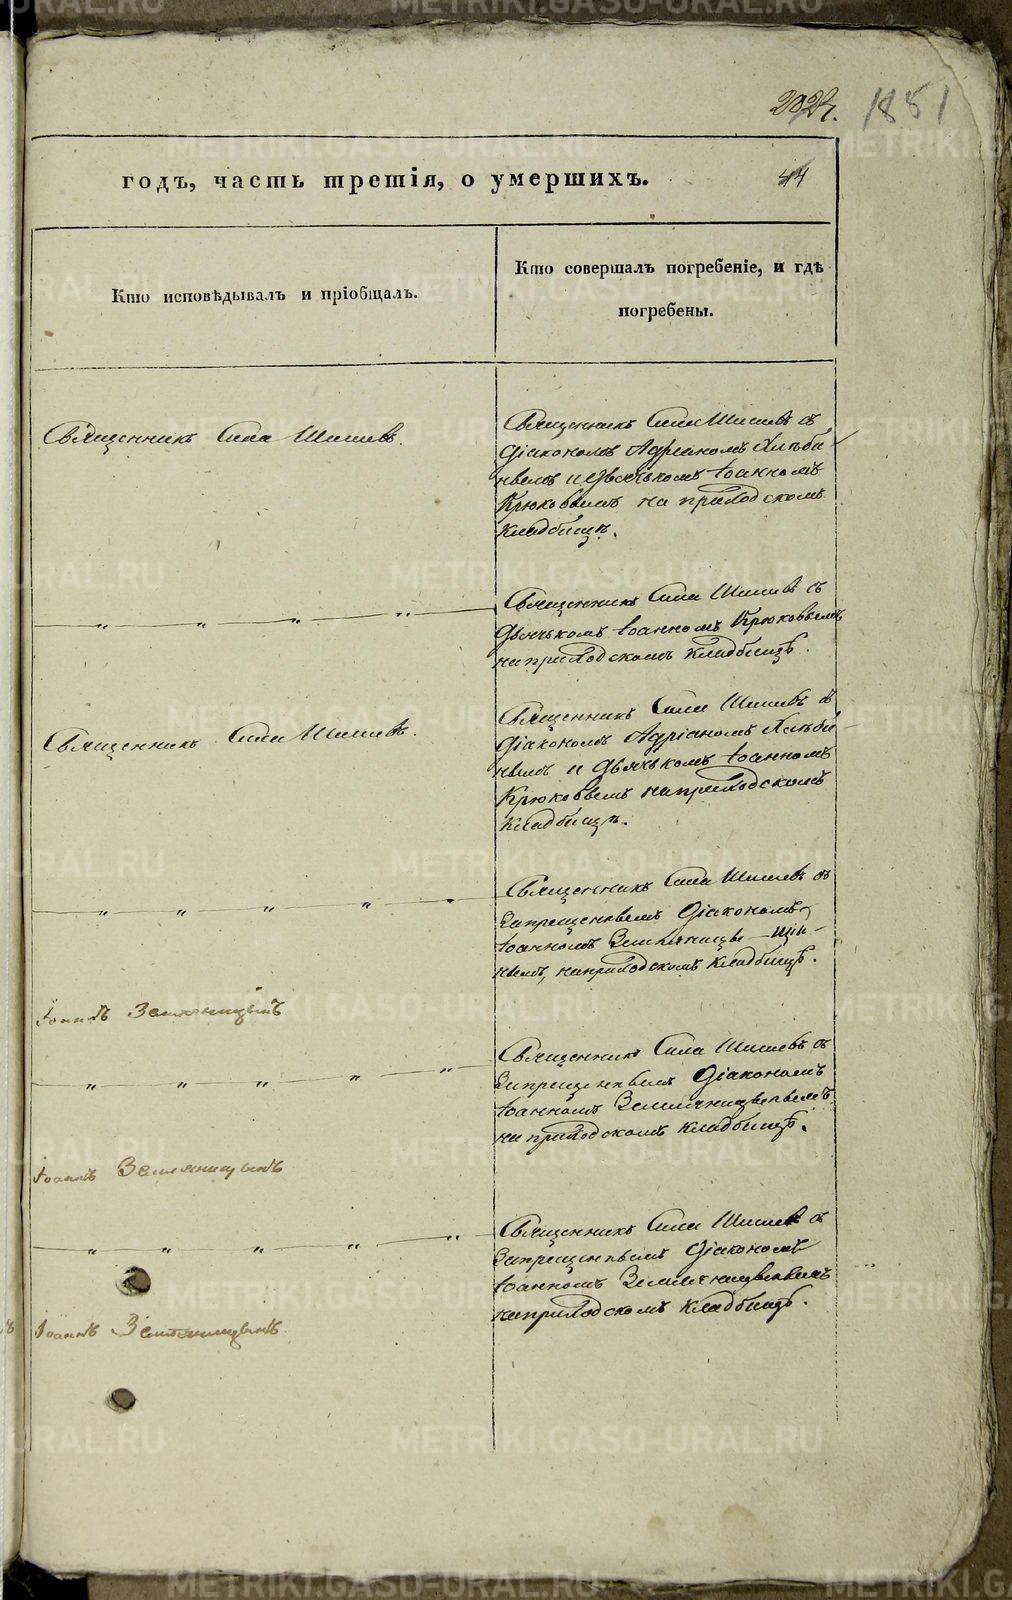 1851
годъ, часть третія, о умершихъ.
44
Кто исповѣдывалъ и пріобщалъ.
Кто совершалъ погребеніе, и гдѣ
погребены.
Священникъ Сила Шишевъ.
Священникъ Сила Шишевъ съ
діакономъ Адріаномъ Хлѣби
нымъ и дьячькомъ Іоанномъ
Крюковымъ на приходскомъ
кладбищѣ.
" " " "
Священникъ Сила Шишевъ съ
дьячькомъ Іоанномъ Крюковымъ
на приходскомъ кладбищѣ.
Священникъ Сила Шишевъ.
Священникъ Сила Шишевъ съ
діакономъ Адріаномъ Хлѣби
нымъ и дьячькомъ Іоанномъ
Крюковымъ на приходскомъ
кладбищѣ.
" " " " "
Священникъ Сила Шишевъ съ
запрещеннымъ діакономъ
Іоанномъ
нымъ, на приходскомъ кладбищѣ.
Іоаннъ Земляницынъ
" " " " "
Священникъ Сила Шишевъ съ
запрещеннымъ діакономъ
Іоанномъ
на приходскомъ кладбищѣ.
Іоаннъ Земляницынъ
" " " " "
Священникъ Сила Шишевъ съ
запрещеннымъ діакономъ
Іоанномъ
на приходскомъ кладбищѣ.
Іоаннъ Земляницынъ
METRIKI.GASO-URAL.RU